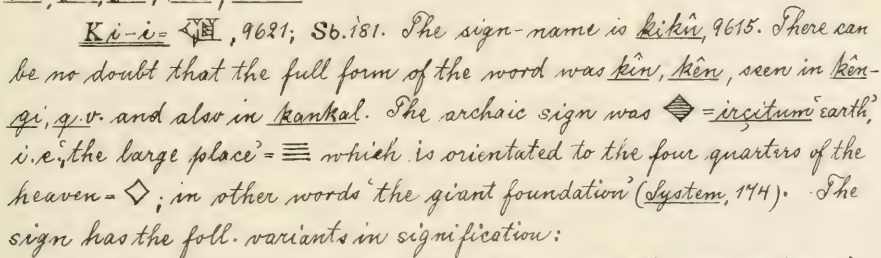 Ki-i= 𒆠, 9621; Sb. 181. The sign-name is kikû, 9615. There can
be no doubt that the full form of the word was kîn, kên, seen in kên-
gi, q.v. and also in kankal. The archaic sign was = irçitum 'earth',
i.e., 'the large place' = ≡ which is orientated to the four quarters of the
heaven = ◇; in other words 'the giant foundation' (System, 174). The
sign has the foll. variants in signification: